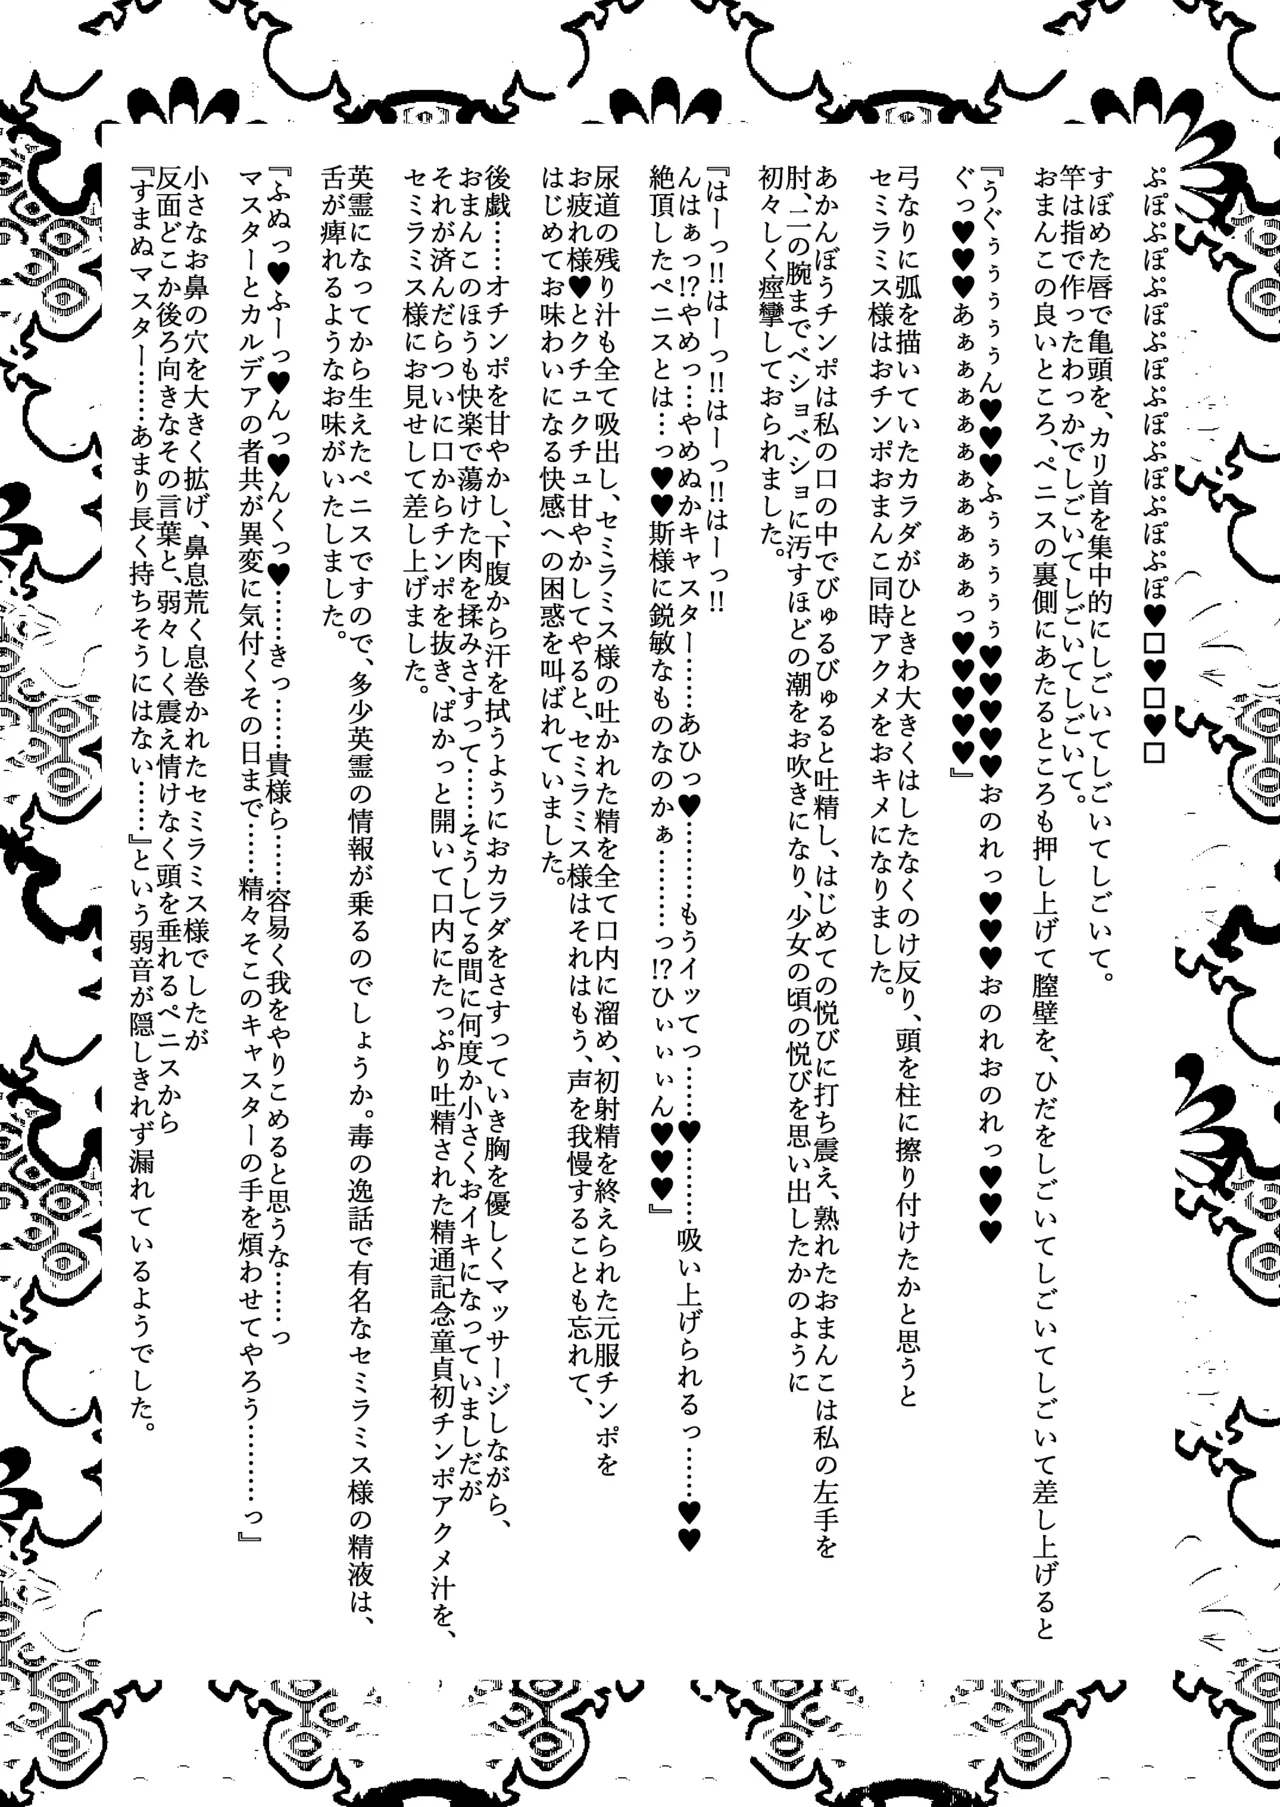 ぷぽぷぽぷぽぷぽぷぽぷぽぷぽ♥□♥□♥□
すぼめた唇で亀頭を、カリ首を集中的にしごいてしごいてしごいて。
竿は指で作ったわっかでしごいてしごいてしごいて。
おまんこの良いところ、ペニスの裏側にあたるところも押し上げて膣壁を、ひだをしごいてしごいてしごいて差し上げると
『うぐぅぅぅぅぅん♥♥♥ふぅぅぅぅぅ♥♥♥♥♥おのれっ♥♥♥おのれおのれっ♥♥♥
ぐっ♥♥♥あぁぁぁぁぁぁぁぁぁぁっ♥♥♥♥♥』
弓なりに弧を描いていたカラダがひときわ大きくはしたなくのけ反り、頭を柱に擦り付けたかと思うと
セミラミス様はおチンポおまんこ同時アクメをおキメになりました。
あかんぼうチンポは私の口の中でびゅるびゅると吐精し、はじめての悦びに打ち震え、熟れたおまんこは私の左手を
肘、二の腕までベショベショに汚すほどの潮をお吹きになり、少女の頃の悦びを思い出したかのように
初々しく痙攣しておられました。
『はーっ!!はーっ!!はーっ!!はーっ!!
んはぁっ!?やめっ…やめぬかキャスター……あひっ♥…………もうイッてっ……♥…………吸い上げられるっ……♥♥
絶頂したペニスとは…っ♥♥斯様に鋭敏なものなのかぁ………っ!?ひぃぃぃん♥♥♥』
尿道の残り汁も全て吸出し、セミラミス様の吐かれた精を全て口内に溜め、初射精を終えられた元服チンポを
お疲れ様♥とクチュクチュ甘やかしてやると、セミラミス様はそれはもう、声を我慢することも忘れて、
はじめてお味わいになる快感への困惑を叫ばれていました。
後戯……オチンポを甘やかし、下腹から汗を拭うようにおカラダをさすっていき胸を優しくマッサージしながら、
おまんこのほうも快楽で蕩けた肉を揉みさすって……そうしてる間に何度か小さくおイキになっていましだが
それが済んだらついに口からチンポを抜き、ぱかっと開いて口内にたっぷり吐精された精通記念童貞初チンポアクメ汁を、
セミラミス様にお見せして差し上げました。
英霊になってから生えたペニスですので、多少英霊の情報が乗るのでしょうか。毒の逸話で有名なセミラミス様の精液は、
舌が痺れるようなお味がいたしました。
『ふぬっ♥ふーっ♥んっ♥んくっ♥……きっ……貴様ら……容易く我をやりこめると思うな……っ
マスターとカルデアの者共が異変に気付くその日まで……精々そこのキャスターの手を煩わせてやろう………っ』
小さなお鼻の穴を大きく拡げ、鼻息荒く息巻かれたセミラミス様でしたが
反面どこか後ろ向きなその言葉と、弱々しく震え情けなく頭を垂れるペニスから
『すまぬマスター……あまり長く持ちそうにはない……』という弱音が隠しきれず漏れているようでした。